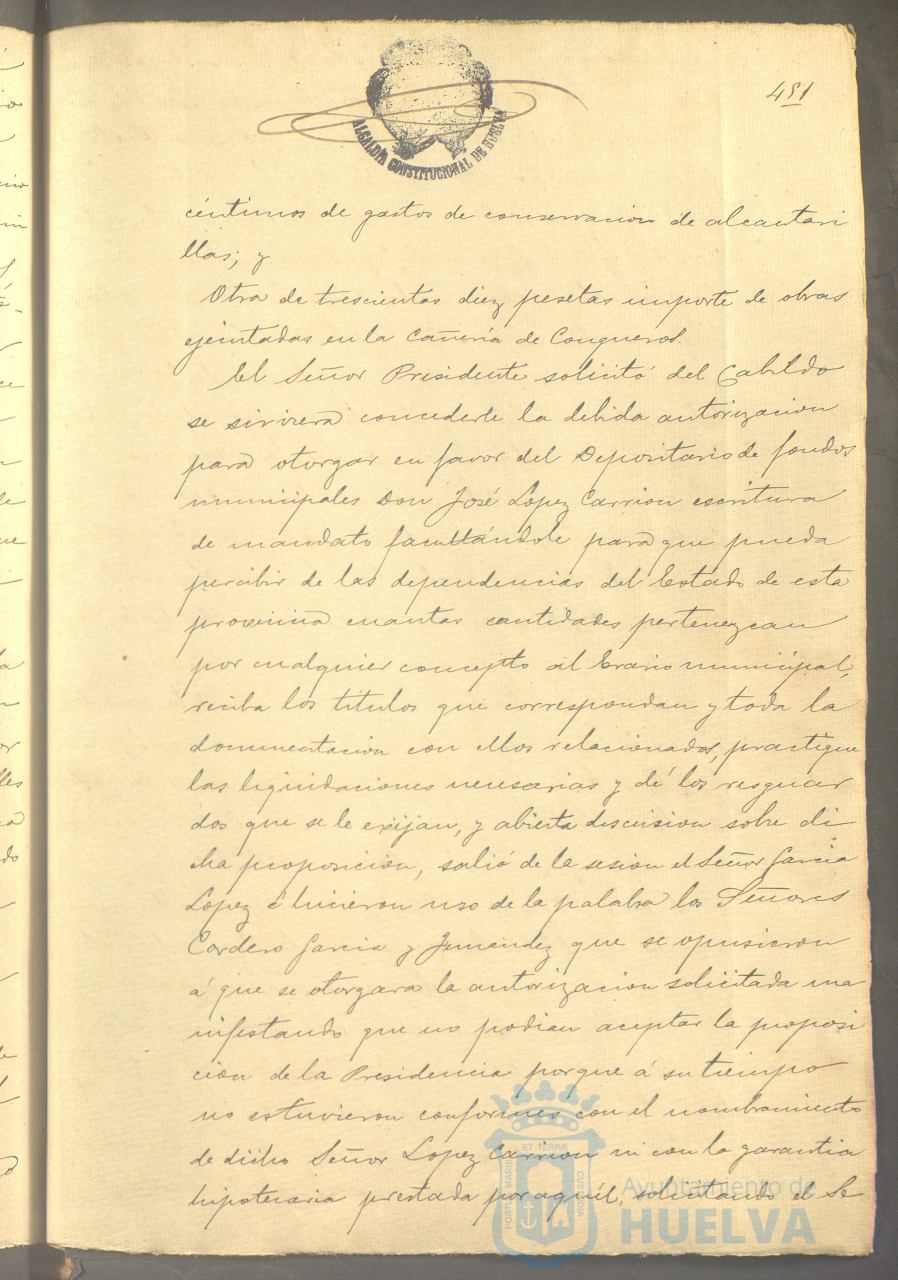 451
ALCALDIA CONSTITUCIONAL DE HUELVA
céntimos de gastos de conservacion de alcantari
llas; y
Otra de trescientas diez pesetas importe de obras
ejecutadas en la cañeria de Conqueros.
El Señor Presidente solicitó del Cabildo
se sirviera concederle la debida autorizacion
para otorgar en favor del Depositario de fondos
municipales Don José Lopez Carrion escritura
de mandato facultándole para que pueda
percibir de las dependencias del Estado de esta
provincia cuantas cantidades pertenezcan
por cualquier concepto al Erario municipal,
reciba los titulos que correspondan y toda la
documentacion con ellos relacionados, practique
las liquidaciones necesarias y dé los resguar
dos que se le exijan, y abierta discusion sobre di
cha proposicion, salió de la sesion el Señor Garcia
Lopez é hicieron uso de la palabra los Señores
Cordero Garcia y Jimenez que se opusieron
á que se otorgara la autorizacion solicitada ma
nifestando que no podian aceptar la proposi
cion de la Presidencia porque á su tiempo
no estuvieron conformes con el nombramiento
de dicho Señor Lopez Carrion ni con la garantia
hipotecaria prestada por aquél, solicitando el Se
PORTUS MARIS ET TERRÆ CUSTODIA
Ayuntamiento de
HUELVA